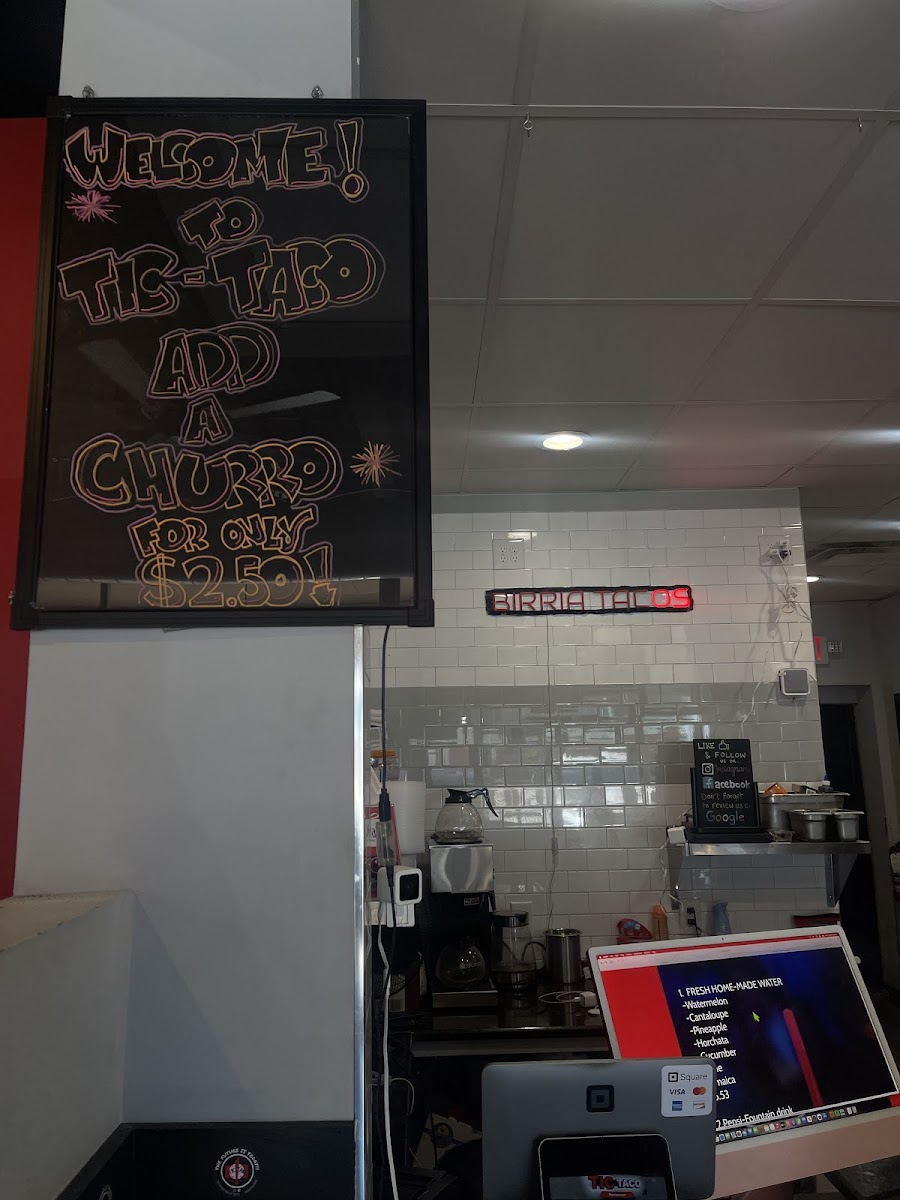 WELCOME!
TO
TIC-TACO
ADD
A
CHURRO
FOR ONLY
$2.50!
BIRRIA TACOS
LIKE
& FOLLOW
US ON
Instagram
Facebook
Don't forget
to review us on
Google
1. FRESH HOME-MADE WATER
-Watermelon
-Cantaloupe
-Pineapple
-Horchata
-Cucumber
maica
.53
2 Pepsi-Fountain drink
Square
VISA
TIC TACO
THE FUTURE IS TOASTY